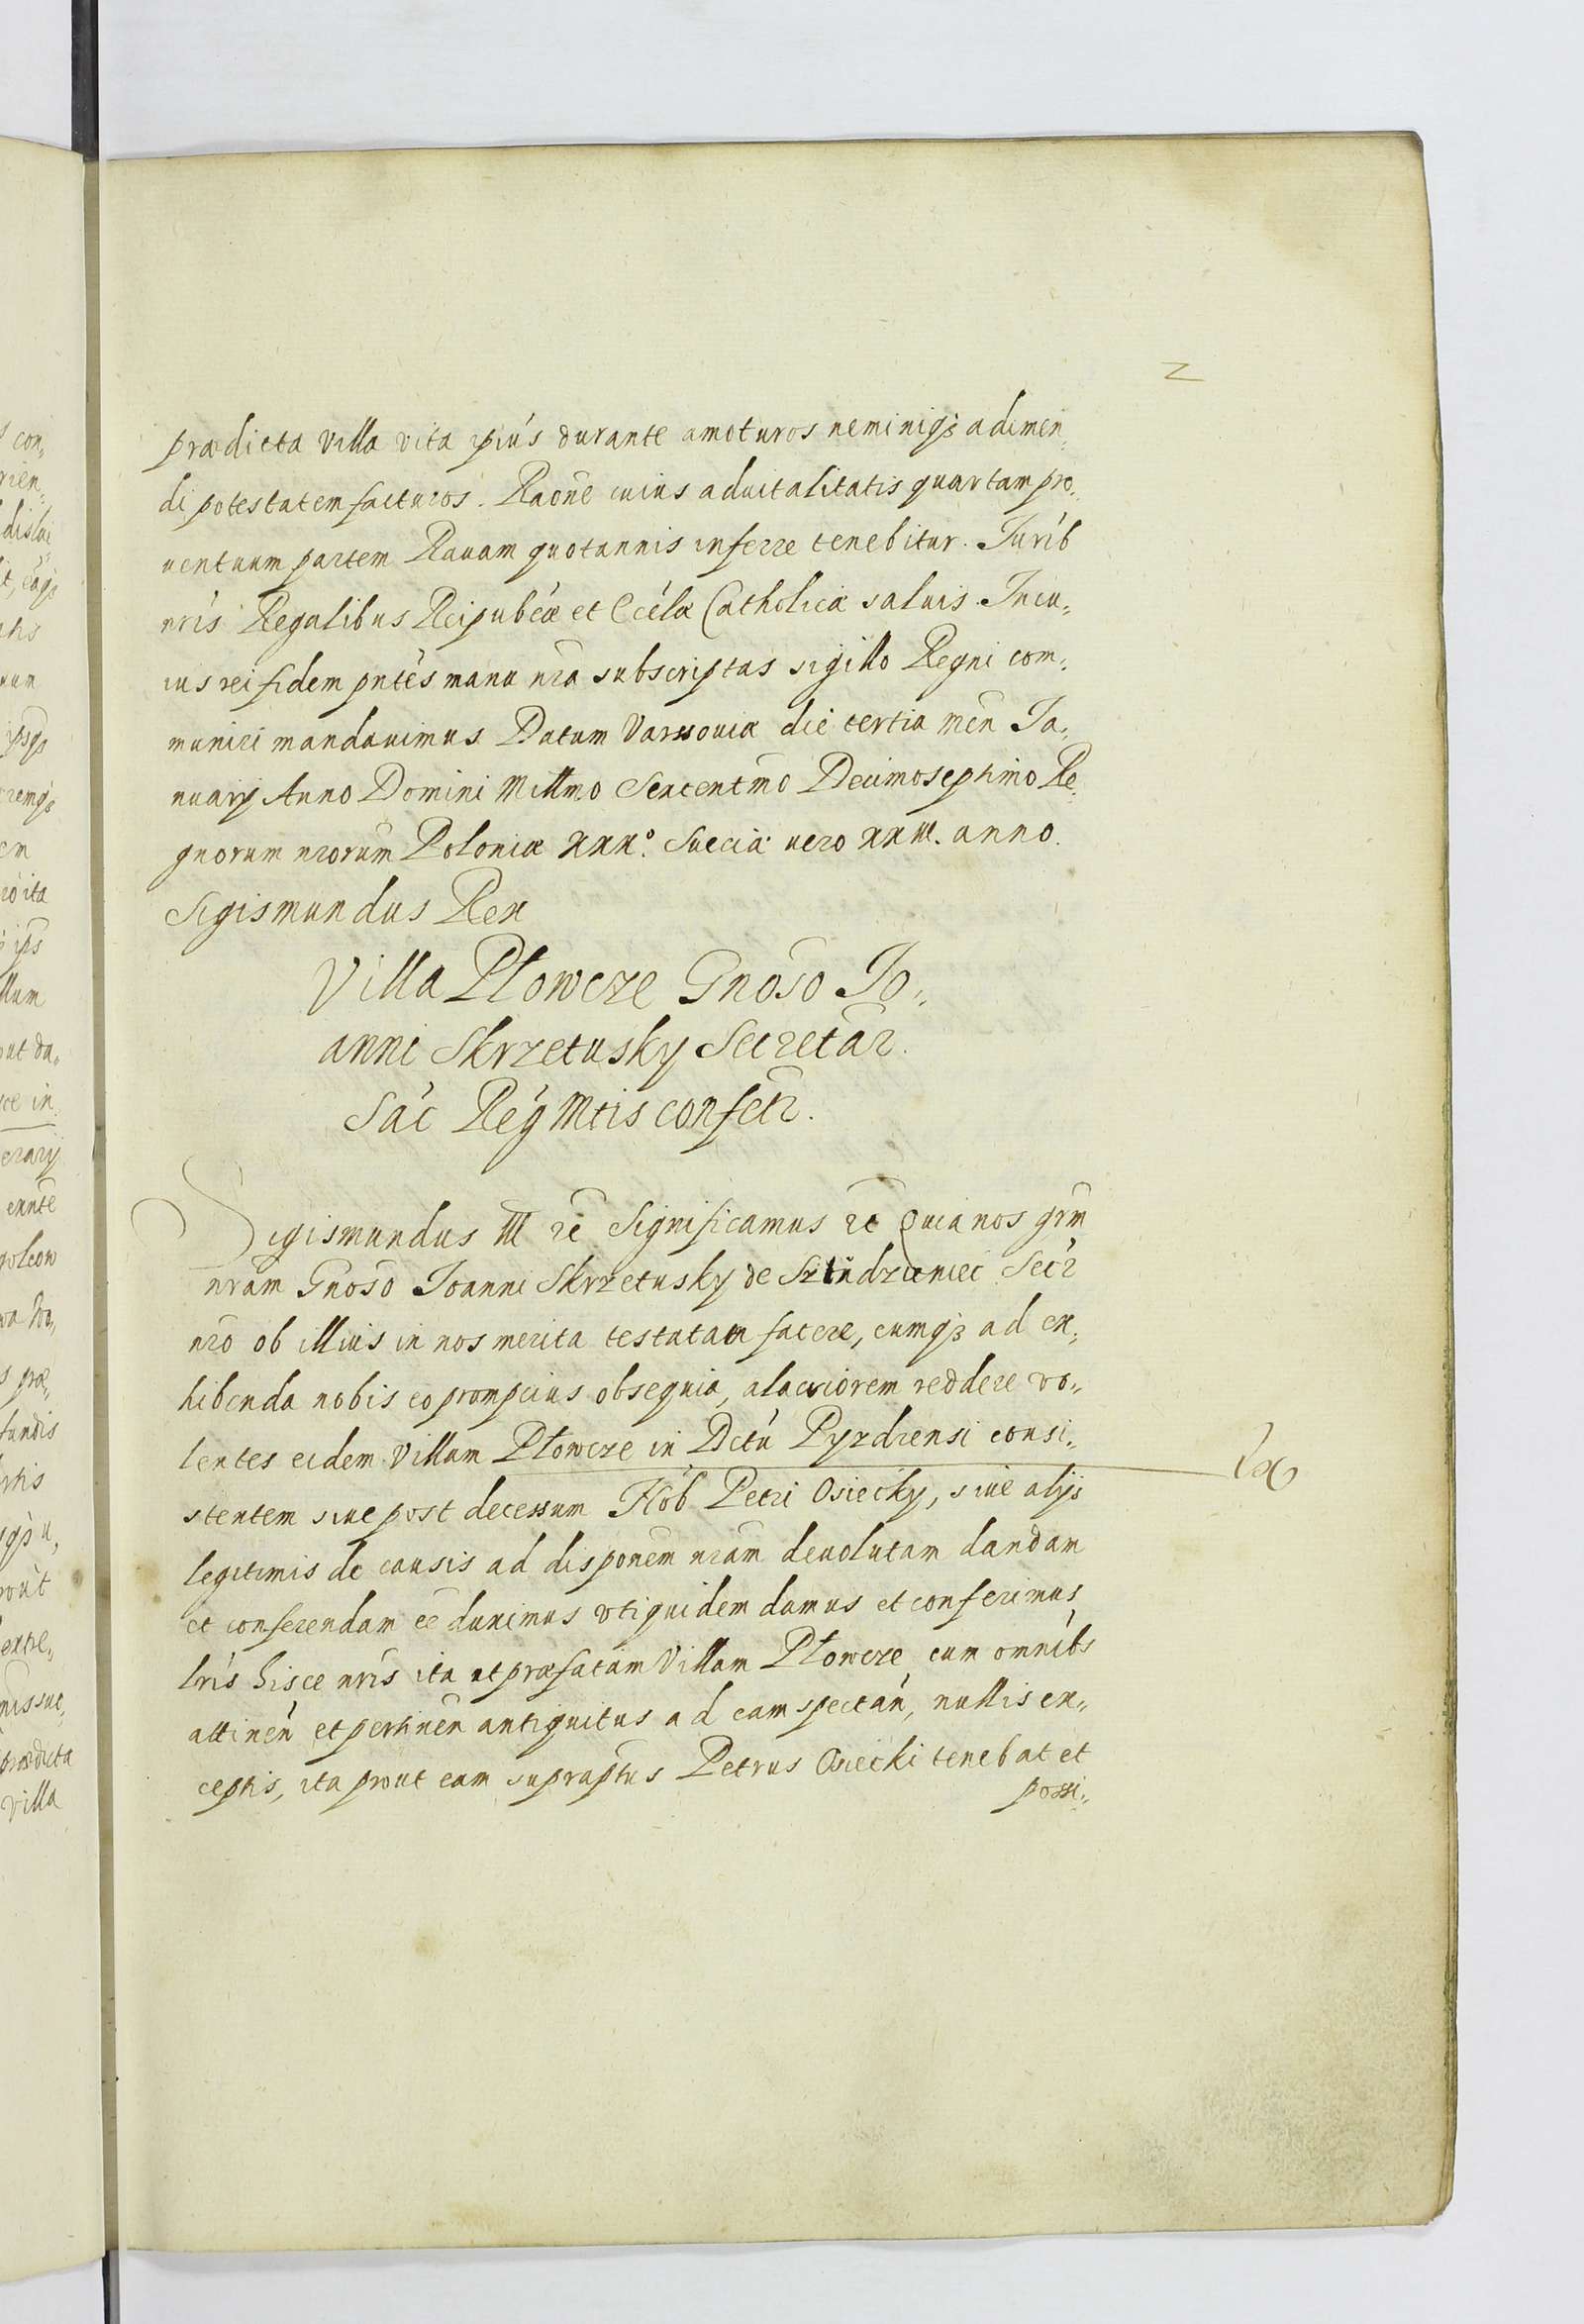 2
prædicta Villa vita ipiús durante amoturos neminiqз adimen„
di potestatem facturos. Raone cuius aduitalitatis quartam pro„
uentuum partem Rauam quotannis inferre tenebitur. Iurib
nris Regalibus Reipubcæ et Eccla Catholicæ saluis. In cu„
ius rei fidem pntes manu nra subscriptas sigillo Regni com„
muniri mandauimus. Datum Varssouiæ die tertia men Ja„
nuarij Anno Domini Millmo Sexcentmo Decimoseptimo Re„
gnorum nrorum Poloniæ xxx°. Sueciæ uero xxiii. anno.
Sigismundus Rex
Villa Płowcze Gnoso Io„
anni Skrzetusky Secretar.
Sac Reg Mtis confetr.
Sigismundus III rc Significamus rc Quia nos grm
nram Gnoso Ioanni Skrzetusky de Secr
nro ob illius in nos merita testatam facere, eumqз ad ex„
hibenda nobis eo prompcius obsequia, alacriorem reddere vo„
lentes eidem Villam Płowcze in Dctu Pyzdrensi consi„
stentem siue post decessum Nob Petri Osiecky, siue alijs
legitimis de causis ad disponem nram deuolutam dandam
et conferendam ee duximus vti quidem damus et conferimus
lris hisce nris ita ut præfatam Villam Płowcze cum omnibs
attinen et pertinen antiquitus ad eam spectan, nullis ex„
ceptis, ita prout eam supraptus Petrus Osiecki tenebat et
possi„